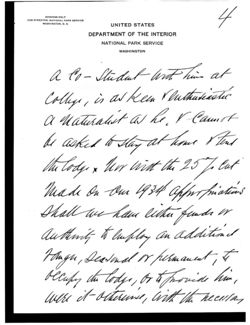 4
ADDRESS ONLY
THE DIRECTOR, NATIONAL PARK SERVICE
WASHINGTON, D. C.
UNITED STATES
DEPARTMENT OF THE INTERIOR
NATIONAL PARK SERVICE
WASHINGTON
a Co-Student with him at
College, is as keen & enthusiastic
a Naturalist as he, & cannot
be asked to stay at home & tend
the lodge x Nor with the 25 % cut
made on our 1934 appropriations
shall we have either funds or
authority to employ an additional
ranger, seasonal or permanent, to
occupy the lodge, or to provide him,
were it otherwise, with the necessary